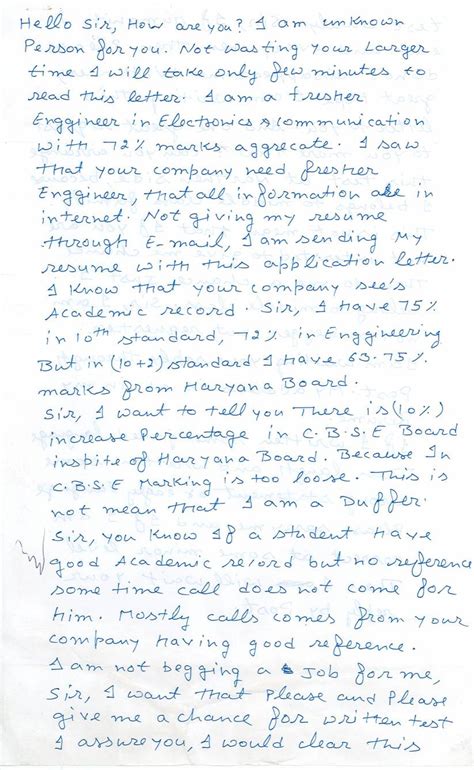 Hello Sir, How are you? I am unknown
Person for you. Not wasting your Larger
time I will take only few minutes to
read this letter. I am a fresher
Enggineer in Electronics & communication
with 72% marks aggrecate. I saw
that your company need fresher
Enggineer, that all information are in
internet. Not giving my resume
through E-mail, I am sending My
resume with this application letter.
I Know that your company see's
Academic record. Sir, I Have 75%
in 10th standard, 72% in Enggineering
But in (10+2) standard I Have 63.75%
marks from Haryana Board.
Sir, I want to tell you There is (10%)
increase Percentage in C.B.S.E Board
inspite of Haryana Board. Because In
C.B.S.E Marking is too loose. This is
not mean that I am a Duffer.
Sir, you know If a student Have
good Academic record but no reference
some time call does not come for
Him. Mostly calls comes from your
company Having good reference.
I am not begging a Job for me,
Sir, I want that Please and Please
give me a chance for written test
I assure you, I would clear this